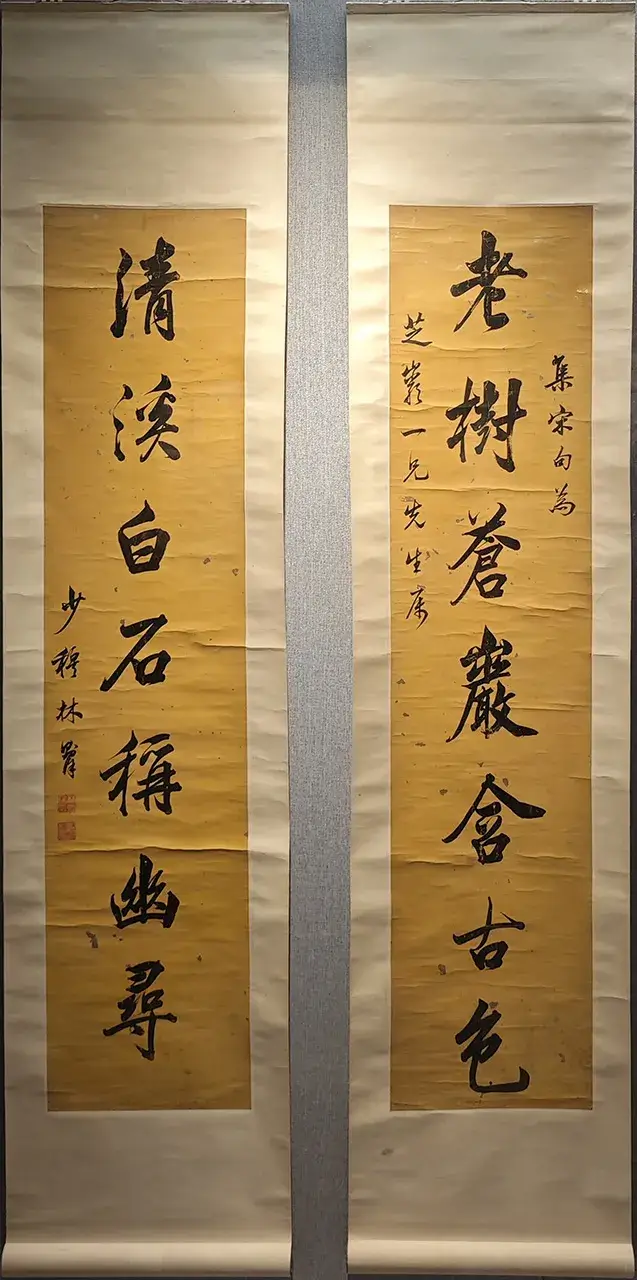 集宋句為
老樹蒼巖含古色
芝一兄先生
清溪白石稱幽尋
少穆林